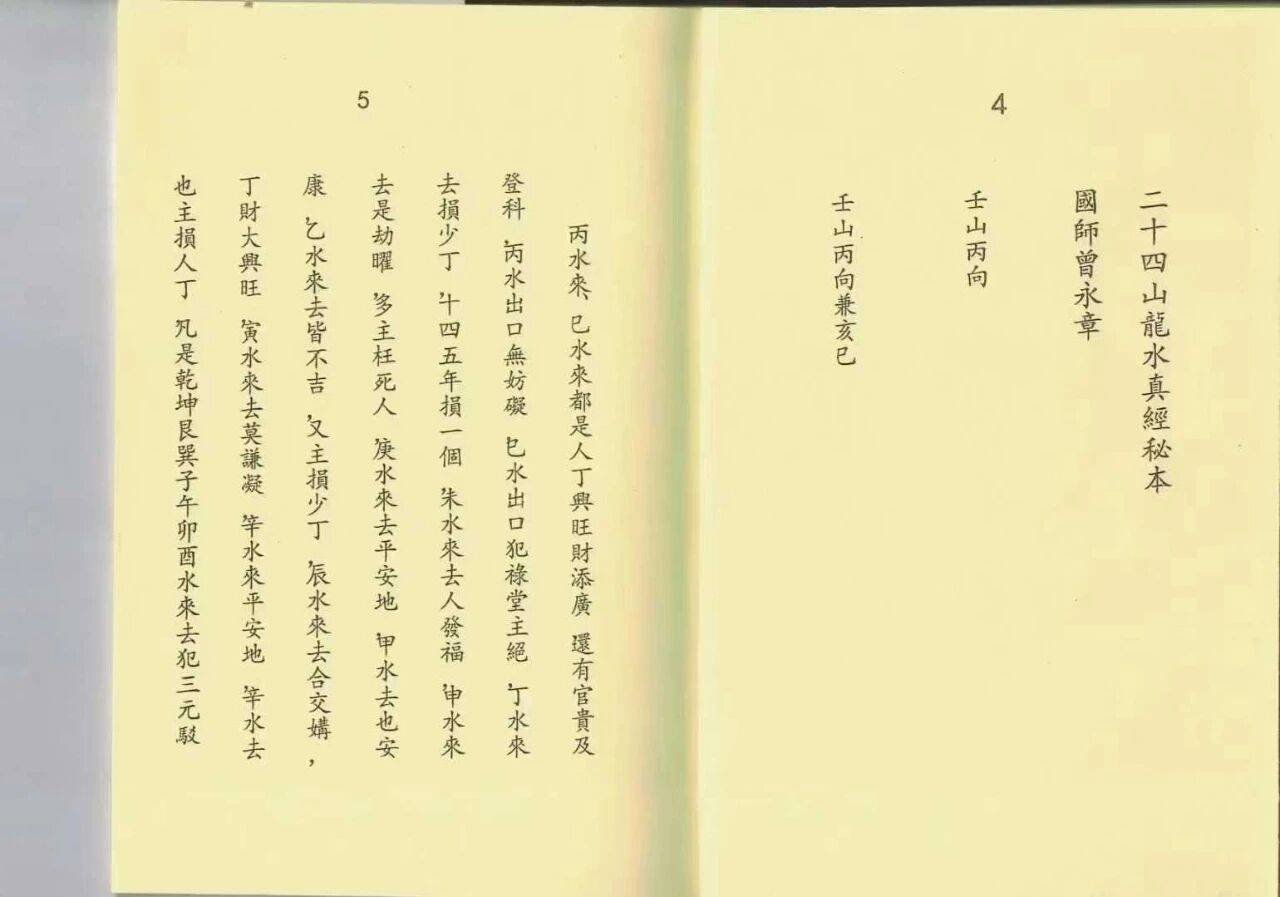 4
二十四山龍水真經秘本
國師曾永章
壬山丙向
壬山丙向兼亥巳
5
丙水來、巳水來都是人丁興旺財添廣，還有官貴及
登科，丙水出口無妨礙，巳水出口犯祿堂主絕，丁水來
去損少丁，十四五年損一個，朱水來去人發福，申水來
去是劫曜，多主枉死人，庚水來去平安地，甲水去也安
康，乙水來去皆不吉，又主損少丁，辰水來去合交媾，
丁財大興旺，寅水來去莫謙凝，辛水來平安地，辛水去
也主損人丁，凡是乾坤艮巽子午卯酉水來去犯三元駁